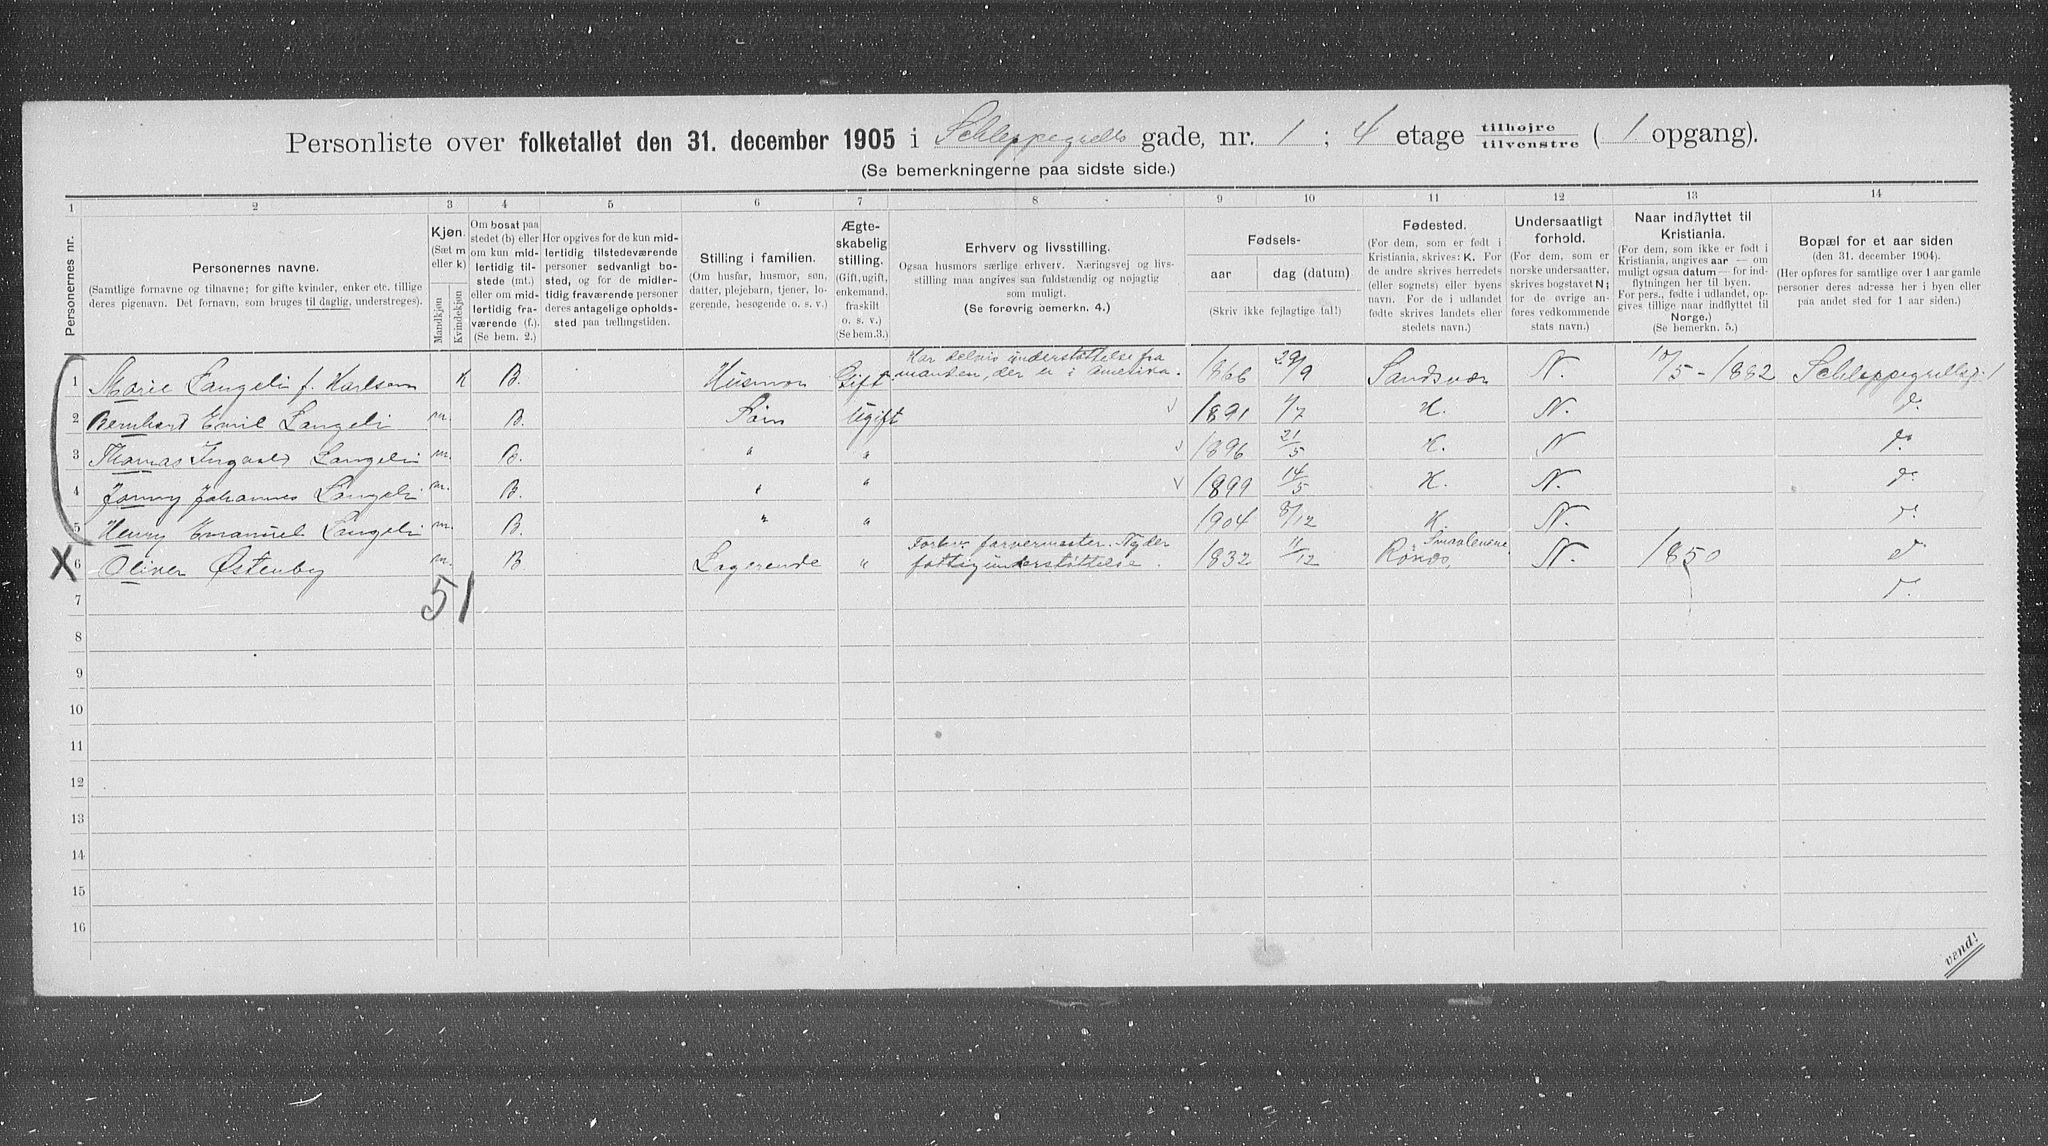 Personliste over folketallet den 31. december 1905 i Schleppegrells gade, nr. 1 ; 4 etage tilhøjre / tilvenstre ( 1 opgang).
(Se bemerkningerne paa sidste side.)
1 2 3 4 5 6 7 8 9 10 11 12 13 14
Personernes nr.
Personernes navne.
(Samtlige fornavne og tilnavne; for gifte kvinder, enker etc. tillige
deres pigenavn. Det fornavn, som bruges til daglig, understreges).
Kjøn.
(Sæt m
eller k)
Mandkjøn
Kvindekjøn
Om bosat paa
stedet (b) eller
om kun mid-
lertidig til-
stede (mt.)
eller om mid-
lertidig fra-
værende (f.).
(Se bem. 2.)
Her opgives for de kun mid-
lertidig tilstedeværende
personer sedvanligt bo-
sted, og for de midler-
tidig fraværende personer
deres antagelige opholds-
sted paa tællingstiden.
Stilling i familien.
(Om husfar, husmor, søn,
datter, plejebarn, tjener, lo-
gerende, besøgende o. s. v.)
Ægte-
skabelig
stilling.
(Gift, ugift,
enkemand,
fraskilt
o. s. v.)
(Se bem.3.)
Erhverv og livsstilling.
Ogsaa husmors særlige erhverv. Næringsvej og livs-
stilling maa angives saa fuldstændig og nøjagtig
som muligt.
(Se forøvrig bemerkn. 4.)
Fødsels-
aar
dag (datum)
(Skriv ikke fejlagtige tal!)
Fødested.
(For dem, som er født i
Kristiania, skrives: K. For
de andre skrives herredets
(eller sognets) eller byens
navn. For de i udlandet
fødte skrives landets eller
stedets navn.)
Undersaatligt
forhold.
(For dem, som er
norske undersaatter,
skrives bogstavet N;
for de øvrige an-
føres vedkommende
stats navn.)
Naar indflyttet til
Kristiania.
(For dem, som ikke er født i
Kristiania, angives aar — om
muligt ogsaa datum — for ind-
flytningen her til byen.
For pers., fødte i udlandet, op-
gives tillige naar indflyttet til
Norge.)
(Se bemerkn. 5.)
Bopæl for et aar siden
(den 31. december 1904).
(Her opføres for samtlige over 1 aar gamle
personer deres adresse her i byen eller
paa andet sted for 1 aar siden.)
1 Marie Langeli f. Karlsom K B. Husmor Gift Har delvis understøttelse fra
manden, der er i Amerika. 1866 29/9 Sandsvær N. 10/5-1882 Schleppegrellsg. 1
2 Bernhard Emil Langeli m. B. Søn Ugift 1891 1/7 K. N. do
3 Thomas Ingvald Langeli m. B. " " 1896 21/5 K. N do
4 Jonny Johannes Langeli m. B. " " 1899 14/5 K. N. do
5 Henry Emanuel Langeli m. B. " " 1904 8/12 K. N. do
X 6 Oliver Østenby m. B Logerende " Forhv. farvermester. Nyder
fattigunderstøttelse. 1832 11/12 Smaalenene N. 1850 do
51
7 do
8
9
10
11
12
13
14
15
16
vend!